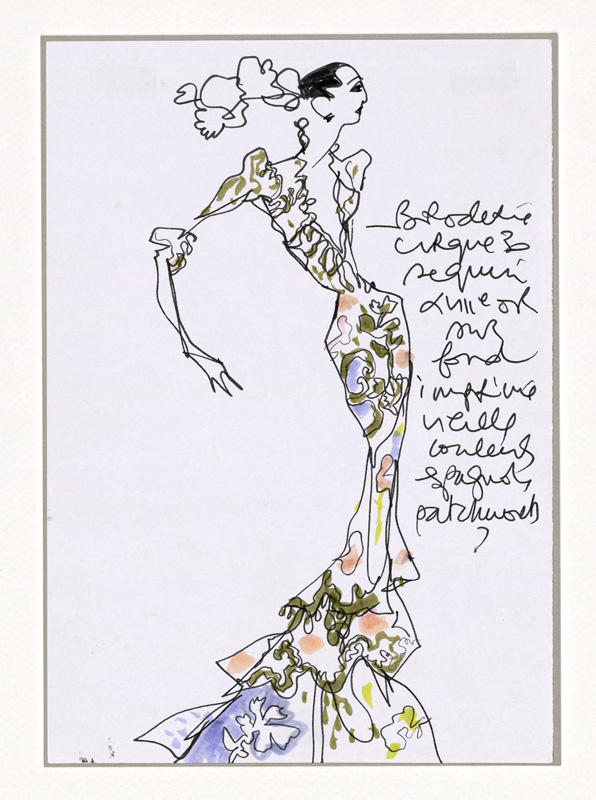 Broderie
cirque
sequin
or
sur
fond
imprimé
vieille
couleurs
patchwork
?